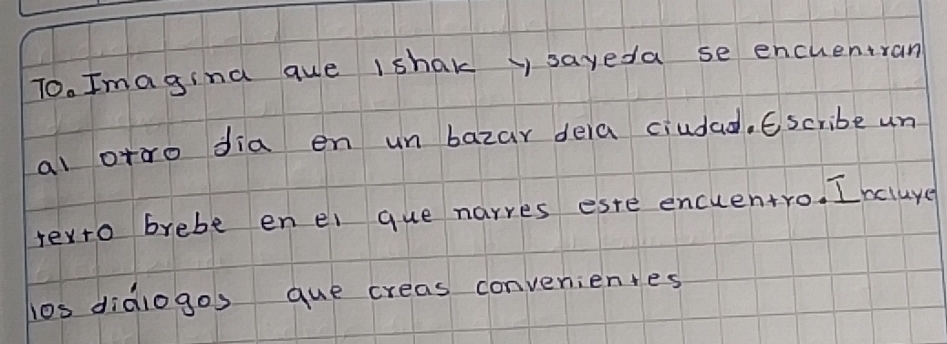 10. Imagina que Ishak y sayeda se encuentran
al otro dia en un bazar dela ciudad. Escribe un
texto brebe en el que narres este encuentro. Incluye
los diálogos que creas convenientes